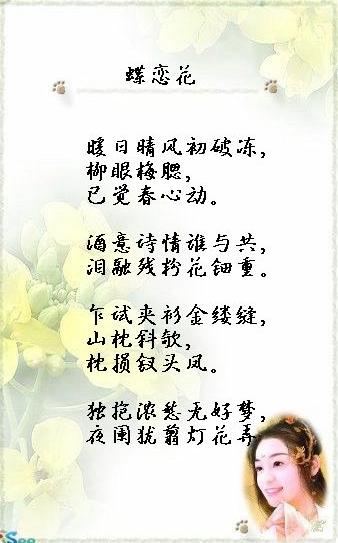 蝶恋花
暖日晴风初破冻，
柳眼梅腮，
已觉春心动。
酒意诗情谁与共，
泪融残粉花钿重。
乍试夹衫金缕缝，
山枕斜欹，
枕损钗头凤。
独抱浓愁无好梦，
夜阑犹翦灯花弄
See